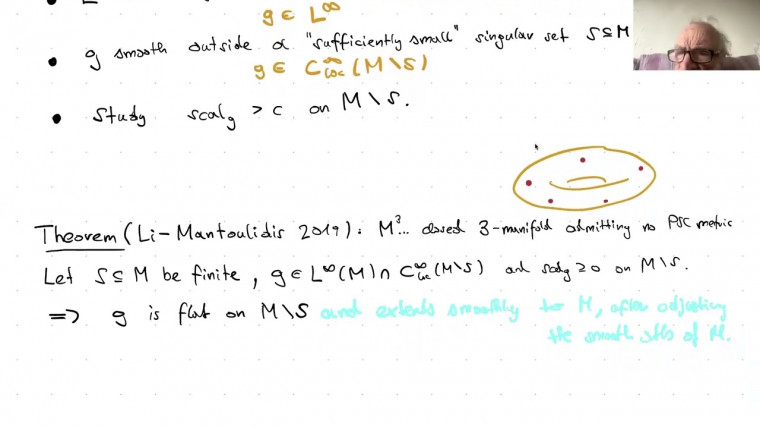 g ∈ L^∞
• g smooth outside a "sufficiently small" singular set S ⊆ M
g ∈ C^∞_loc (M \ S)
• Study scal_g > c on M \ S.
Theorem (Li-Mantoulidis 2019): M³... closed 3-manifold admitting no PSC metric
Let S ⊆ M be finite, g ∈ L^∞(M) ∩ C^∞_loc (M\S) and scal_g ≥ 0 on M\S.
⇒ g is flat on M\S and extends smoothly to M, after adjusting
the smooth of M.